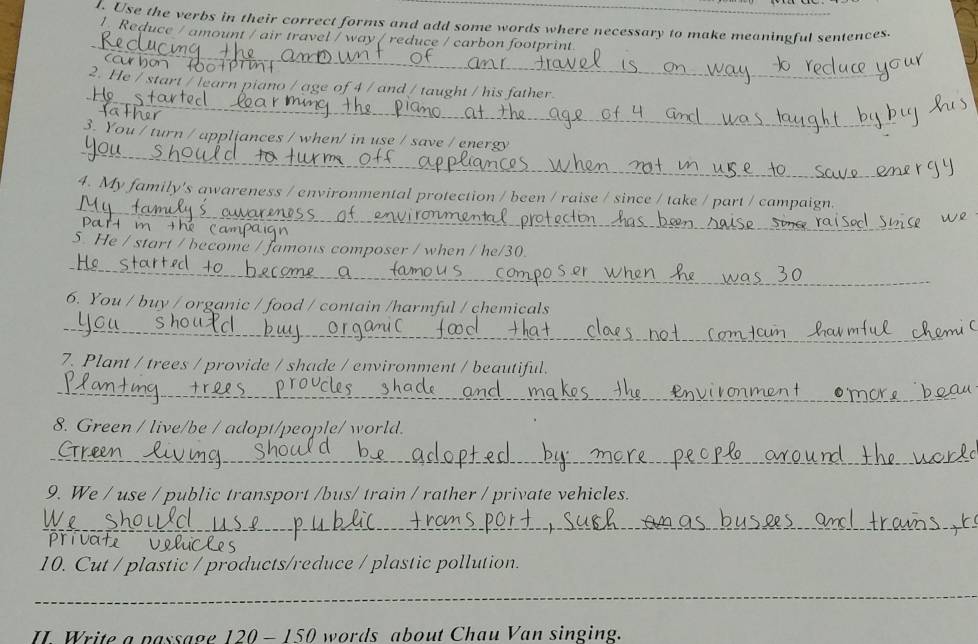 I. Use the verbs in their correct forms and add some words where necessary to make meaningful sentences.
1. Reduce / amount / air travel / way / reduce / carbon footprint.
Reducing the amount of air travel is on way to reduce your
carbon footprint
2. He / start / learn piano / age of 4 / and / taught / his father.
He started learning the piano at the age of 4 and was taught by his
father
3. You / turn / appliances / when/ in use / save / energy
You should to turn off appliances when not in use to save energy
4. My family's awareness / environmental protection / been / raise / since / take / part / campaign.
My family's awareness of environmental protection has been raise since raised since we
part in the campaign
5. He / start / become / famous composer / when / he/30.
He started to become a famous composer when he was 30
6. You / buy / organic / food / contain /harmful / chemicals
you should buy organic food that does not contain harmful chemic
7. Plant / trees / provide / shade / environment / beautiful.
Planting trees provdes shade and makes the environment more beau
8. Green / live/be / adopt/people/ world.
Green living should be adopted by more people around the world
9. We / use / public transport /bus/ train / rather / private vehicles.
We should use public transport, such as busees and trains, r
private vehicles
10. Cut / plastic / products/reduce / plastic pollution.
II. Write a passage 120 – 150 words about Chau Van singing.